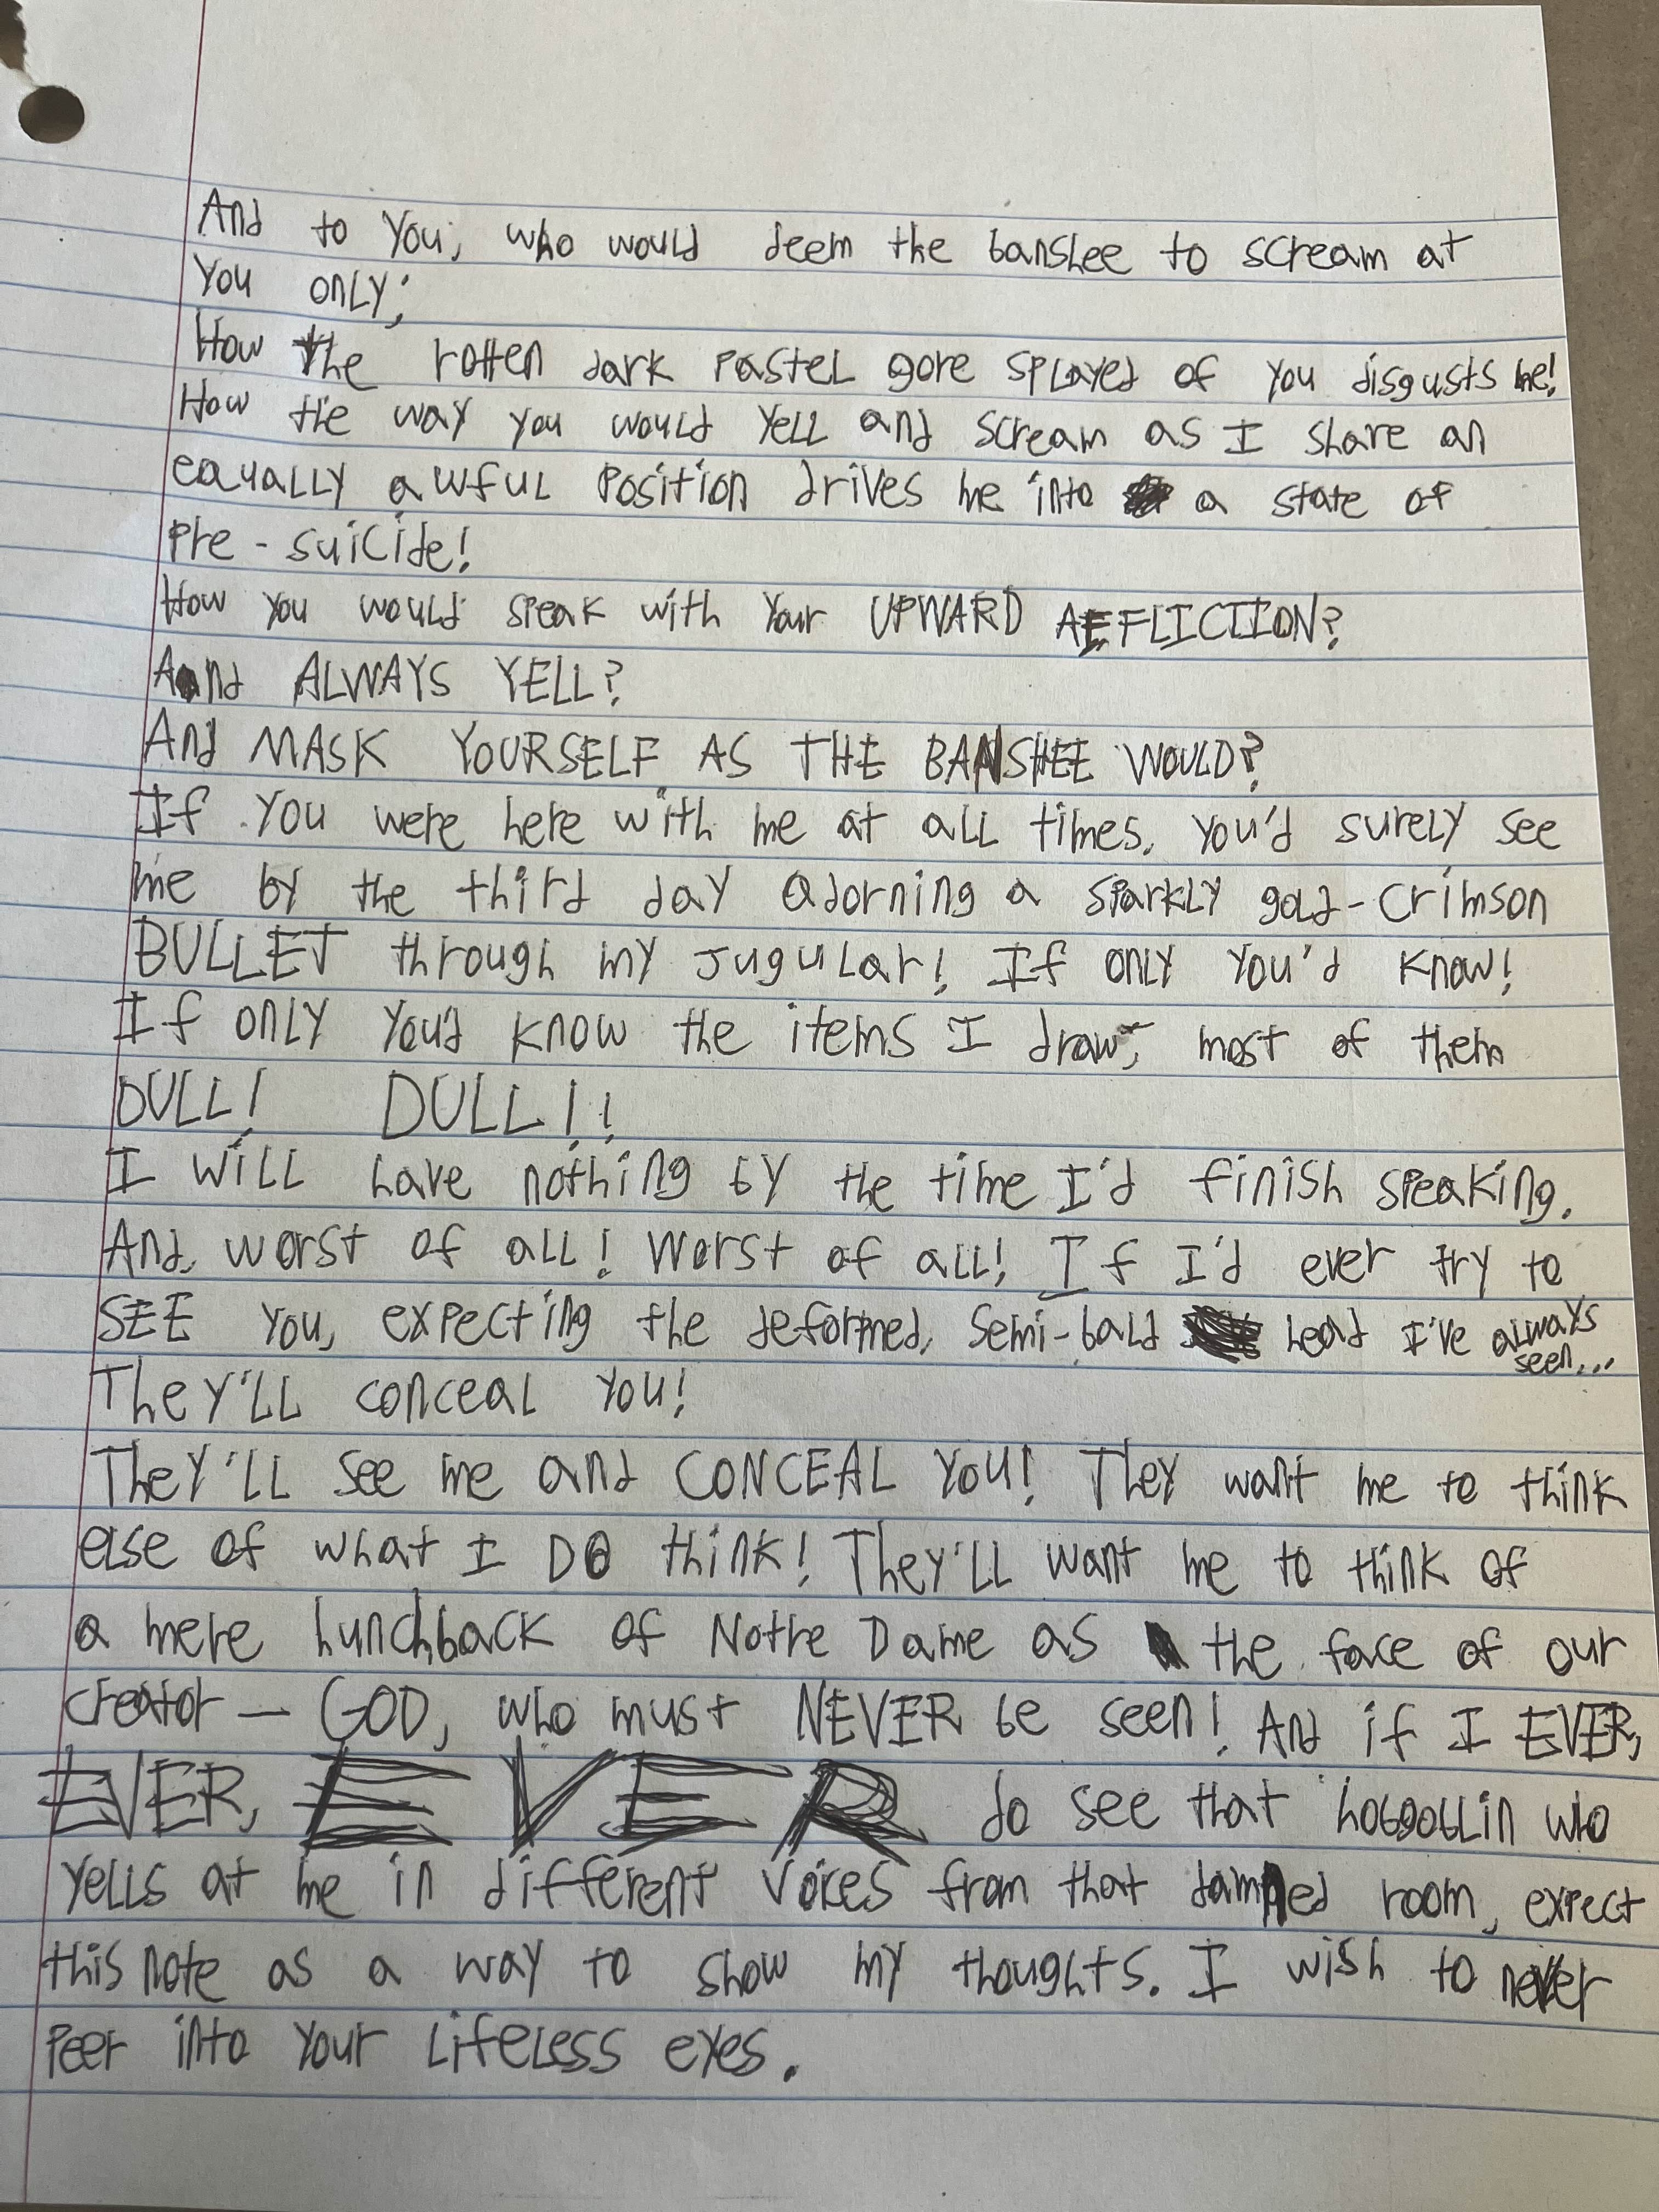 And to You, who would deem the banshee to scream at
You only;
How the rotten dark pastel gore splayed of you disgusts me!
How the way you would yell and scream as I share an
equally awful position drives me into a state of
pre-suicide!
How you would speak with your UPWARD AFFLICTION?
And ALWAYS YELL?
And MASK YOURSELF AS THE BANSHEE WOULD?
If you were here with me at all times, you'd surely see
me by the third day adorning a sparkly gold-crimson
BULLET through my jugular! If only you'd know!
If only you'd know the items I draw, most of them
DULL! DULL!!
I will have nothing by the time I'd finish speaking.
And, worst of all! Worst of all! If I'd ever try to
SEE you, expecting the deformed, semi-bald head I've always
seen...
They'll conceal you!
They'll see me and CONCEAL YOU! They want me to think
else of what I DO think! They'll want me to think of
a mere hunchback of Notre Dame as the face of our
creator - GOD, who must NEVER be seen! And if I EVER,
EVER, EVER do see that hobgoblin who
yells at me in different voices from that damned room, expect
this note as a way to show my thoughts. I wish to never
peer into your lifeless eyes.